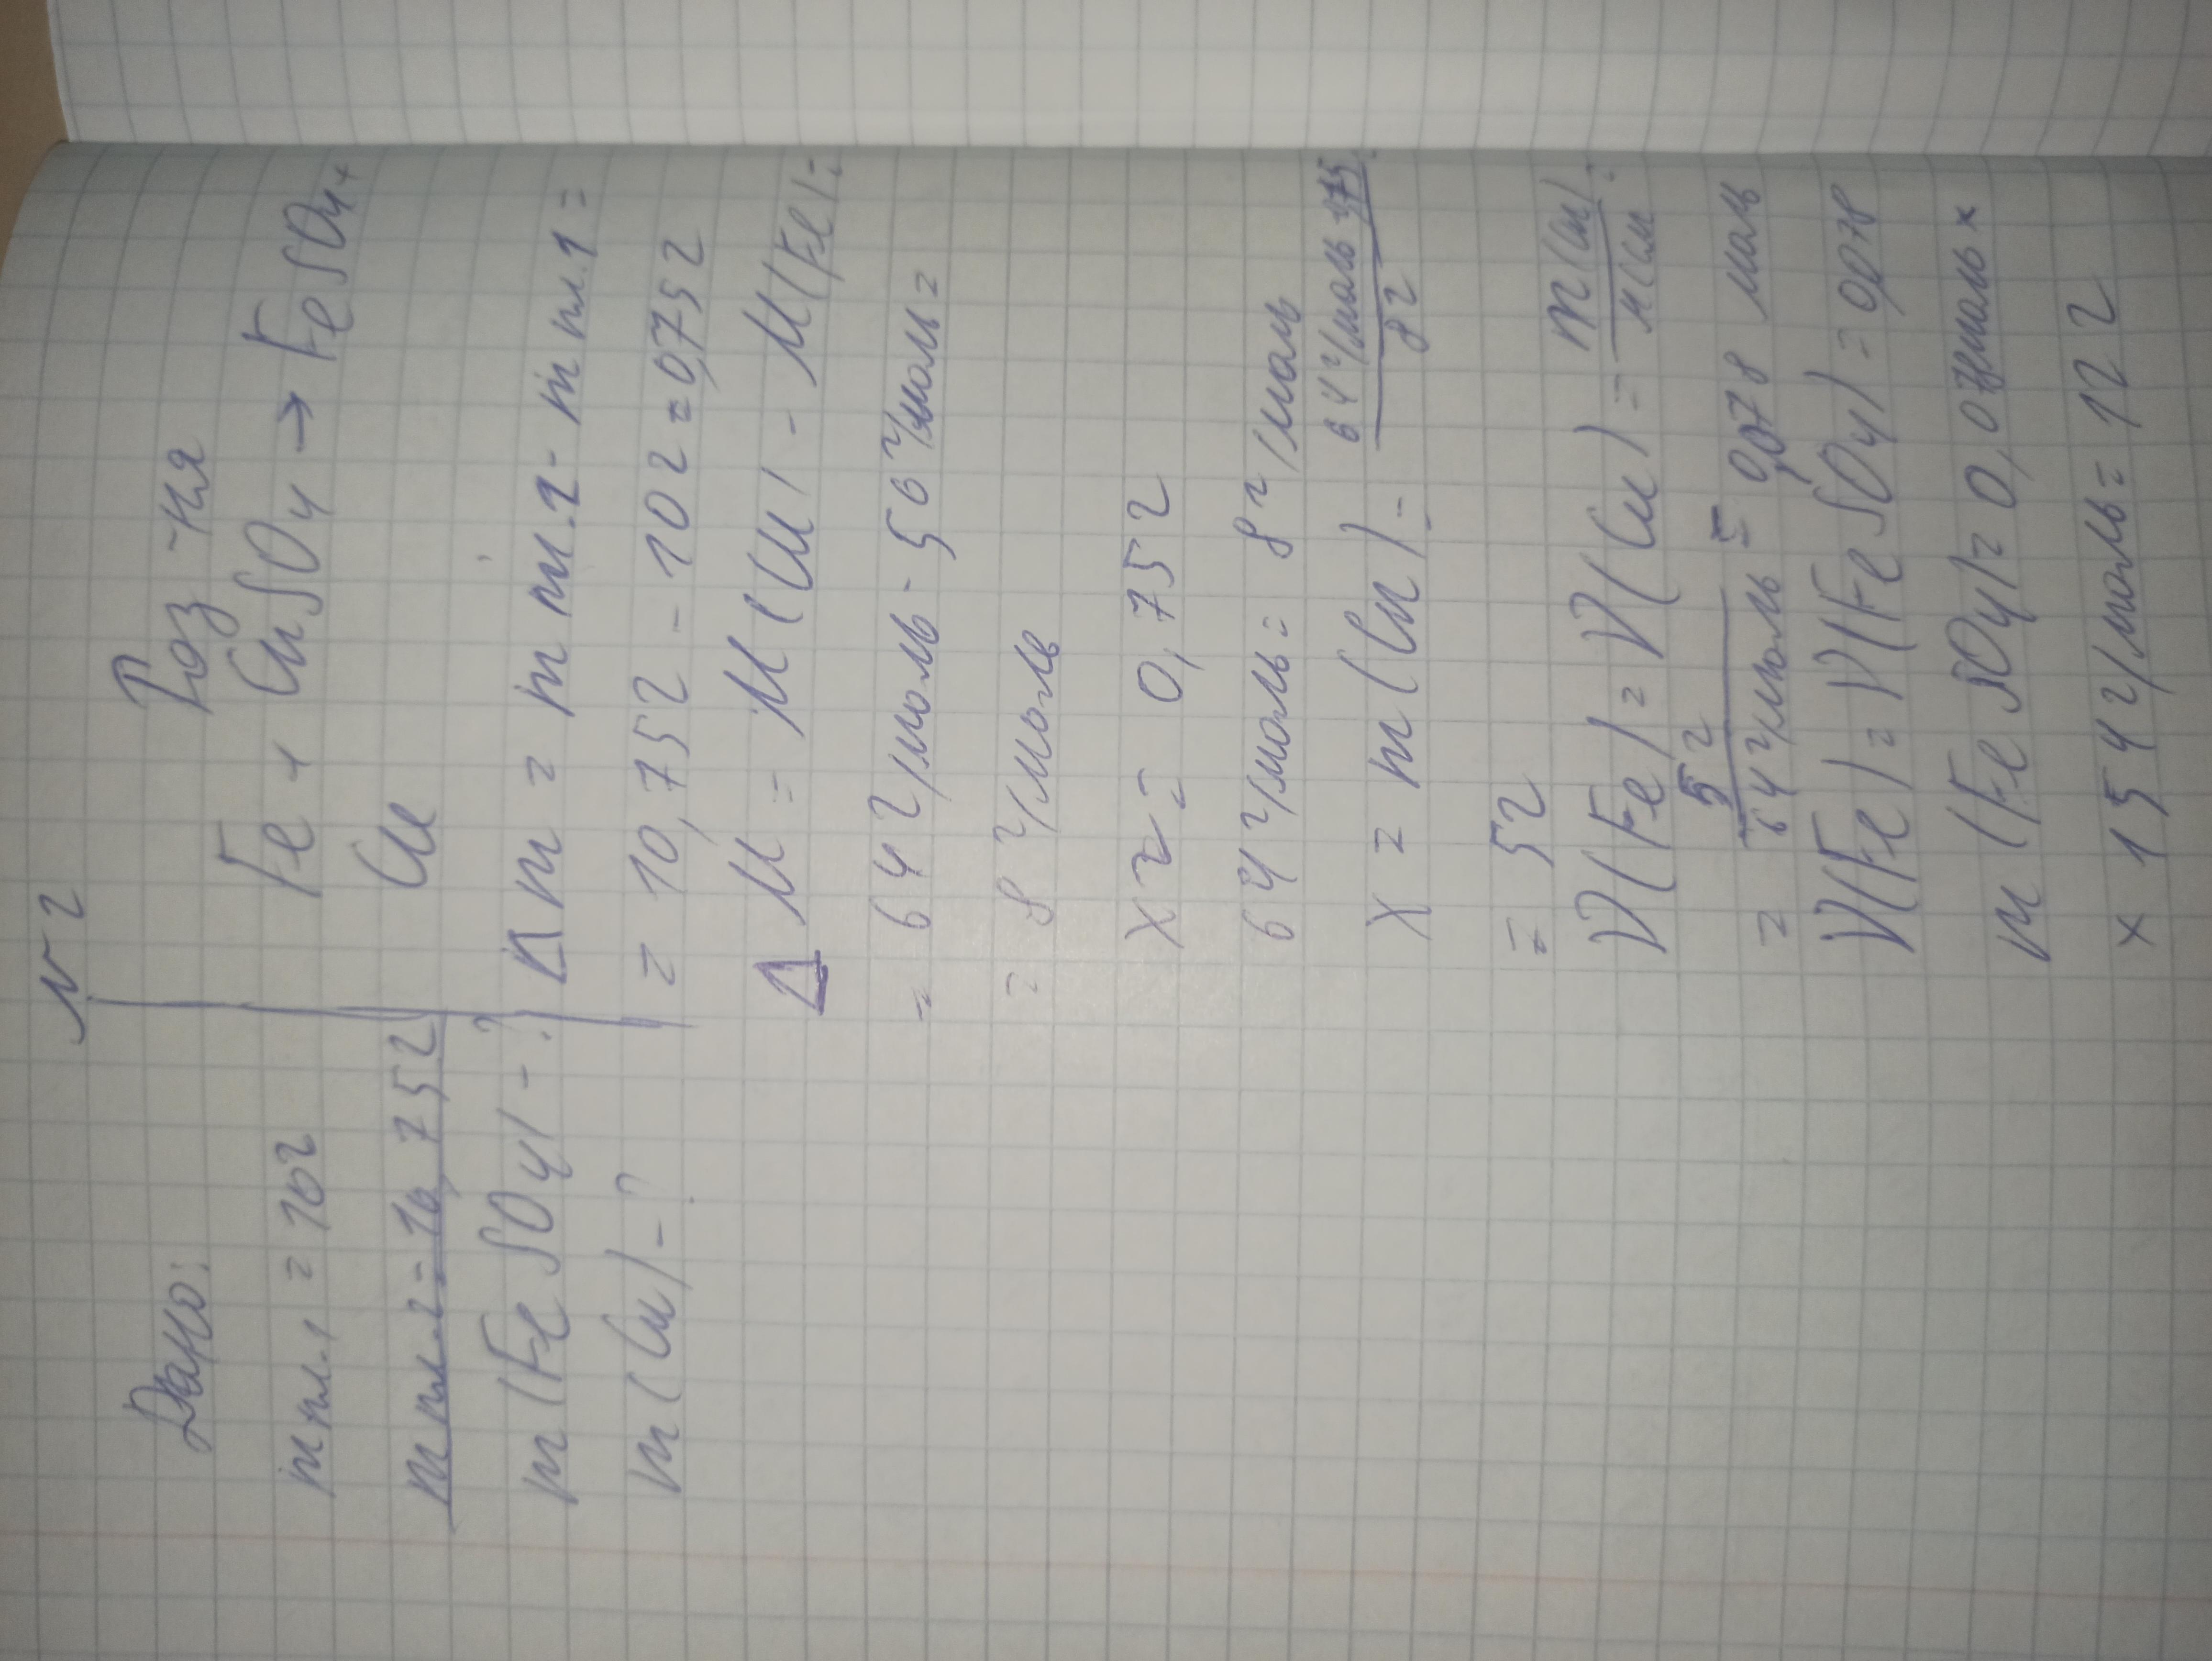 N 2
Дано:
m пл.1 = 10г
m пл.2 = 10,75г
m (FeSO4) - ?
m (Cu) - ?
Роз-ня
Fe + CuSO4 → FeSO4 +
Cu
Δm = m пл.2 - m пл.1 =
= 10,75г - 10г = 0,75г
ΔM = M(Cu) - M(Fe) =
= 64 г/моль - 56 г/моль =
= 8 г/моль
x г = 0,75г
64 г/моль = 8 г/моль
x = m(Cu) = 64 г/моль · 0,75 / 8г
= 5г
ν(Fe) = ν(Cu) = m(Cu) / M(Cu) =
= 5г / 64 г/моль = 0,078 моль
ν(Fe) = ν(FeSO4) = 0,078
m (FeSO4) = 0,078моль x
x 154 г/моль = 12г